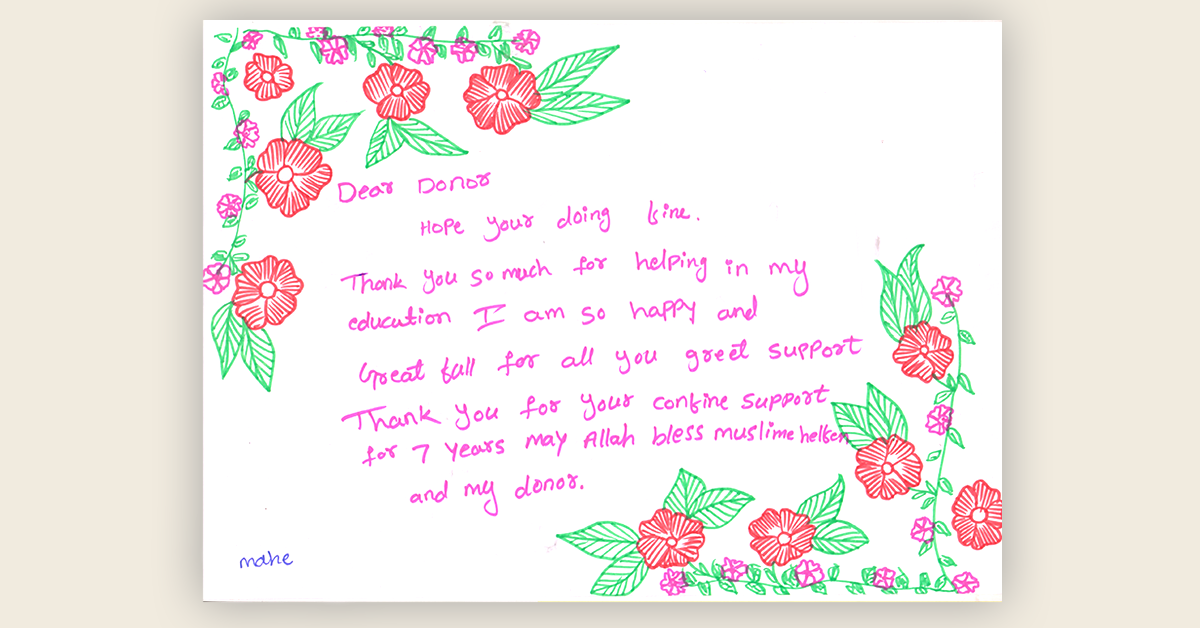 Dear Donor
Hope your doing fine.
Thank you so much for helping in my
education I am so happy and
Great full for all you greet support
Thank you for your confine support
for 7 years may Allah bless muslime helfen
and my donor.
mahe